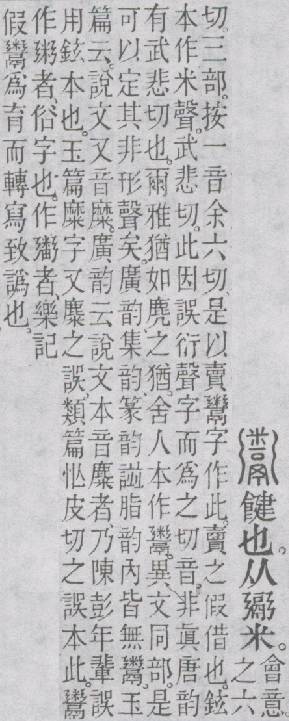 鬻䭈也。从䰜米。會意。之六
切。三部。按一音余六切。是以賣鬻字作此。賣之假借也。鉉
本作米聲。武悲切。此因誤衍聲字而爲之切音。非眞唐韵
有武悲切也。爾雅猶如麂之猶。舍人本作鬻。異文同部。是
可以定其非形聲矣。廣韵、集韵、篆韵諩脂韵內皆無鬻。玉
篇云。說文又音糜。廣韵云。說文本音麋者。乃陳彭年輩誤
用鉉本也。玉篇糜字又麋之誤。類篇忙皮切之誤本此。鬻
作粥者、俗字也。作者、樂記
假鬻爲育而轉寫致譌也。